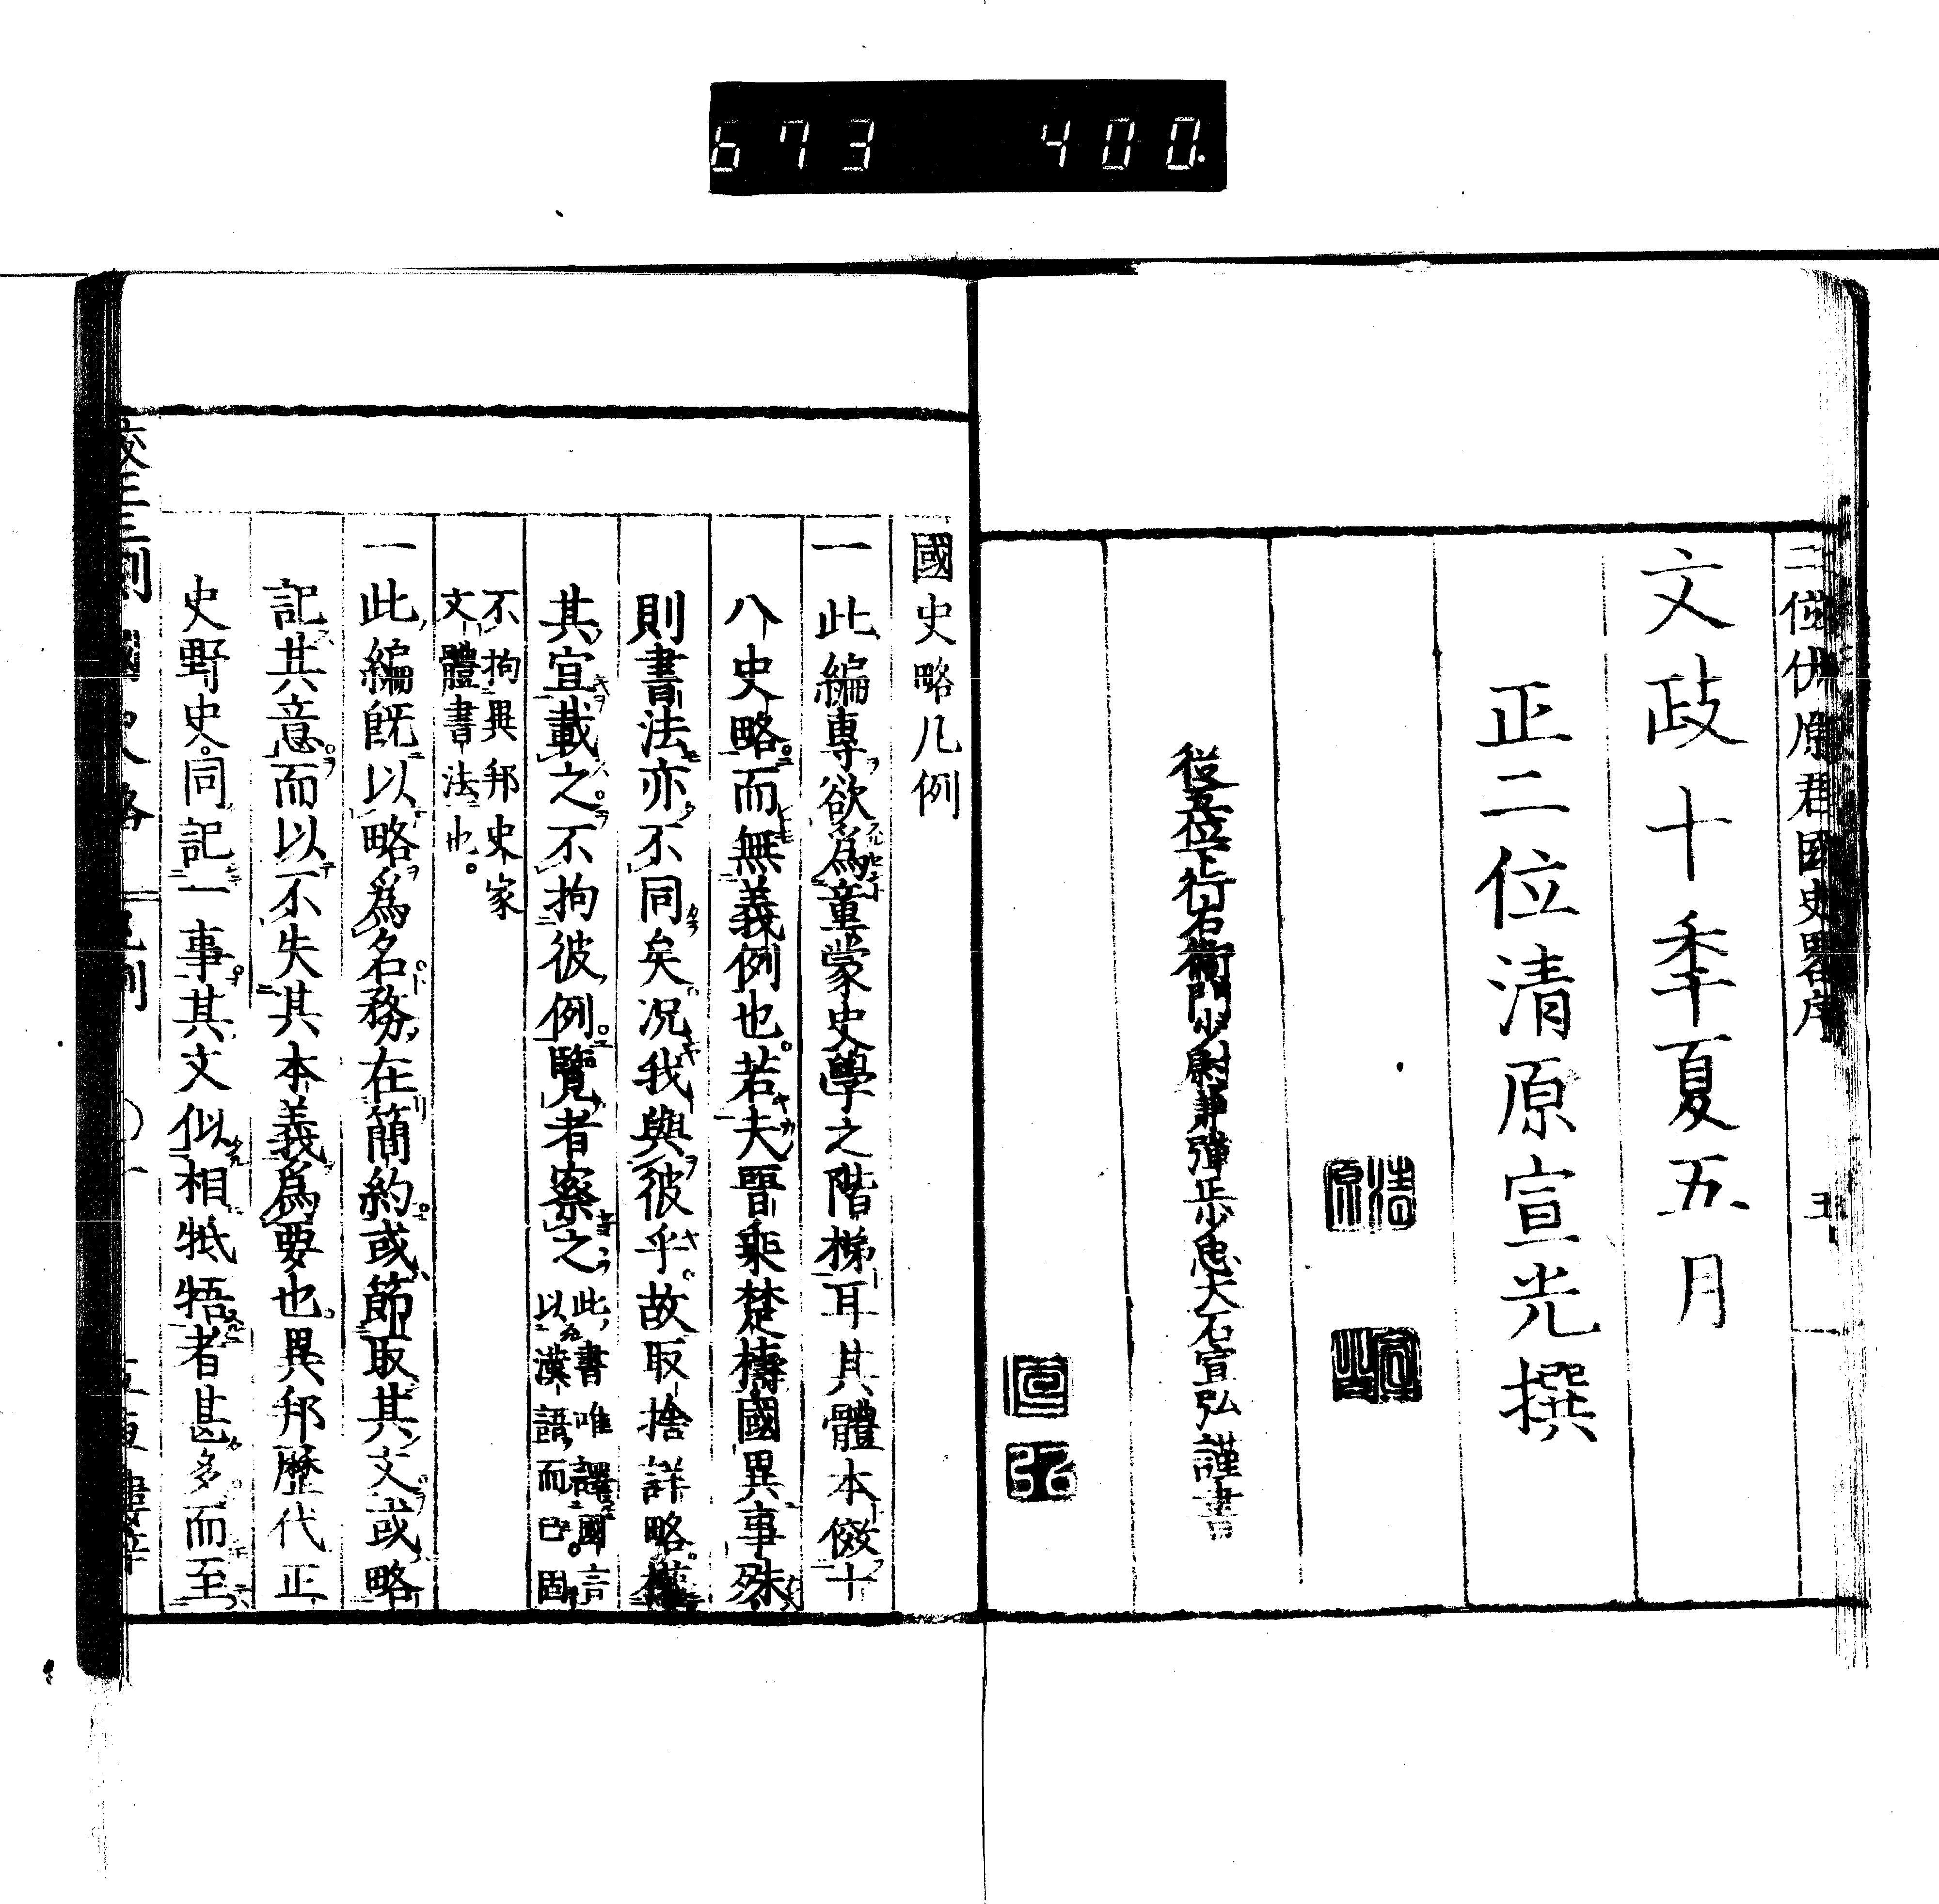 673 400.
文政十季夏五月
正二位清原宣光撰
清原
從五位下行右衛門少尉兼彈正少忠大石宣弘謹書
宣弘
國史略凡例
一此編專欲爲童蒙史學之階梯耳其體本倣十
八史略而無義例也。若夫晉乘楚檮國異事殊
則書法亦不同矣况我與彼乎故取捨詳略。
其宜載之。不拘彼例。覽者察之 此書唯譯國言
以漢語而已。固
不拘異邦史家
文體書法也。
一此編既以略爲名。務在簡約。或節取其文。或略
記其意。而以不失其本義爲要也。異邦歷代正
史野史。同記一事。其文似相牴牾者甚多。而至